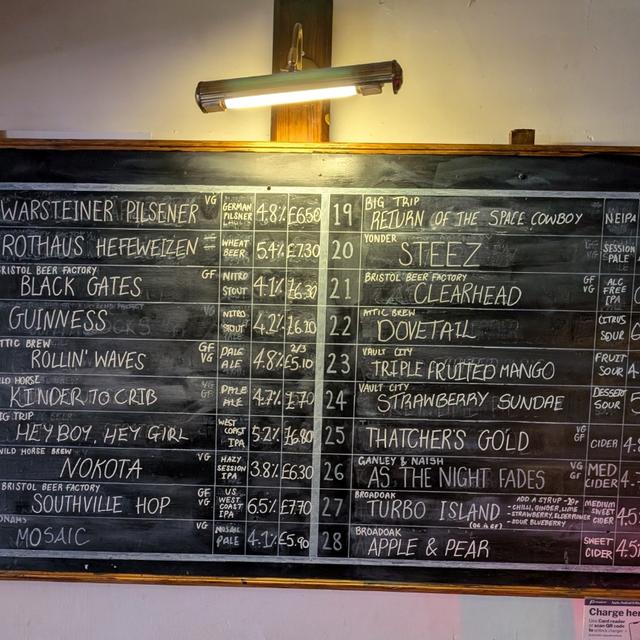 WARSTEINER PILSENER VG GERMAN PILSNER 4.8% £6.50
ROTHAUS HEFEWEIZEN WHEAT BEER 5.4% £7.30
BRISTOL BEER FACTORY
BLACK GATES GF NITRO STOUT 4.1% £6.30
GUINNESS VG NITRO STOUT 4.2% £6.10
ATTIC BREW
ROLLIN' WAVES GF VG PALE ALE 4.8% 2/3 £5.10
WILD HORSE
KINDER TO CRIB VG GF PALE ALE 4.7%
BIG TRIP
HEY BOY, HEY GIRL WEST COAST IPA 5.2% £6.80
WILD HORSE BREW
NOKOTA VG HAZY SESSION IPA 3.8% £6.30
BRISTOL BEER FACTORY
SOUTHVILLE HOP GF VG U.S. WEST COAST IPA 6.5% £7.70
MOSAIC VG MOSAIC PALE 4.1% £5.90
19 BIG TRIP
RETURN OF THE SPACE COWBOY NEIPA
20 YONDER
STEEZ SESSION PALE
21 BRISTOL BEER FACTORY
CLEARHEAD GF VG ALC FREE IPA
22 ATTIC BREW
DOVETAIL CITRUS SOUR
23 VAULT CITY
TRIPLE FRUITED MANGO FRUIT SOUR
24 VAULT CITY
STRAWBERRY SUNDAE DESSERT SOUR
25 THATCHER'S GOLD VG GF CIDER
26 GANLEY & NAISH
AS THE NIGHT FADES VG MED CIDER
27 BROADOAK
TURBO ISLAND
ADD A SYRUP
- CHILLI, GINGER, LIME
- STRAWBERRY, ELDERFLOWER
- SOUR BLUEBERRY
MEDIUM SWEET CIDER 4.5
28 BROADOAK
APPLE & PEAR SWEET CIDER 4.5%
Charge her
Use Card reader
or scan QR code